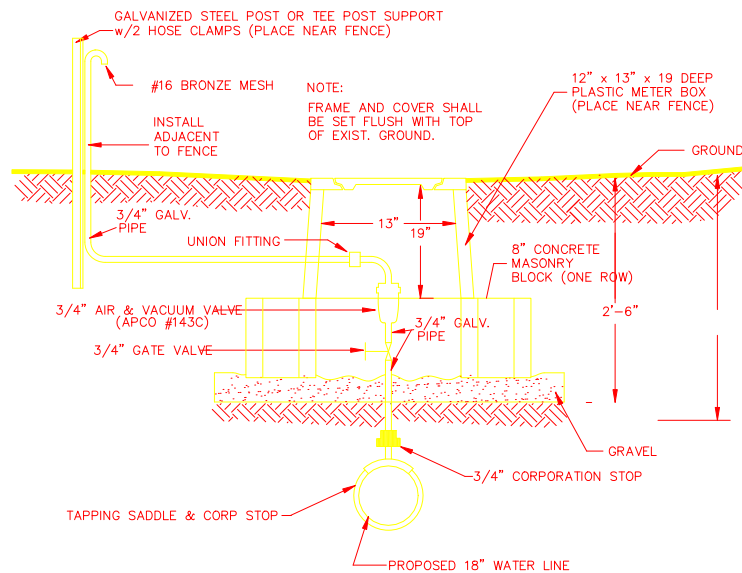 GALVANIZED STEEL POST OR TEE POST SUPPORT
w/2 HOSE CLAMPS (PLACE NEAR FENCE)
#16 BRONZE MESH
NOTE:
FRAME AND COVER SHALL
BE SET FLUSH WITH TOP
OF EXIST. GROUND.
12" x 13" x 19 DEEP
PLASTIC METER BOX
(PLACE NEAR FENCE)
INSTALL
ADJACENT
TO FENCE
GROUND
3/4" GALV.
PIPE
13"
19"
UNION FITTING
8" CONCRETE
MASONRY
BLOCK (ONE ROW)
3/4" AIR & VACUUM VALVE
(APCO #143C)
3/4" GALV.
PIPE
2'-6"
3/4" GATE VALVE
GRAVEL
3/4" CORPORATION STOP
TAPPING SADDLE & CORP STOP
PROPOSED 18" WATER LINE